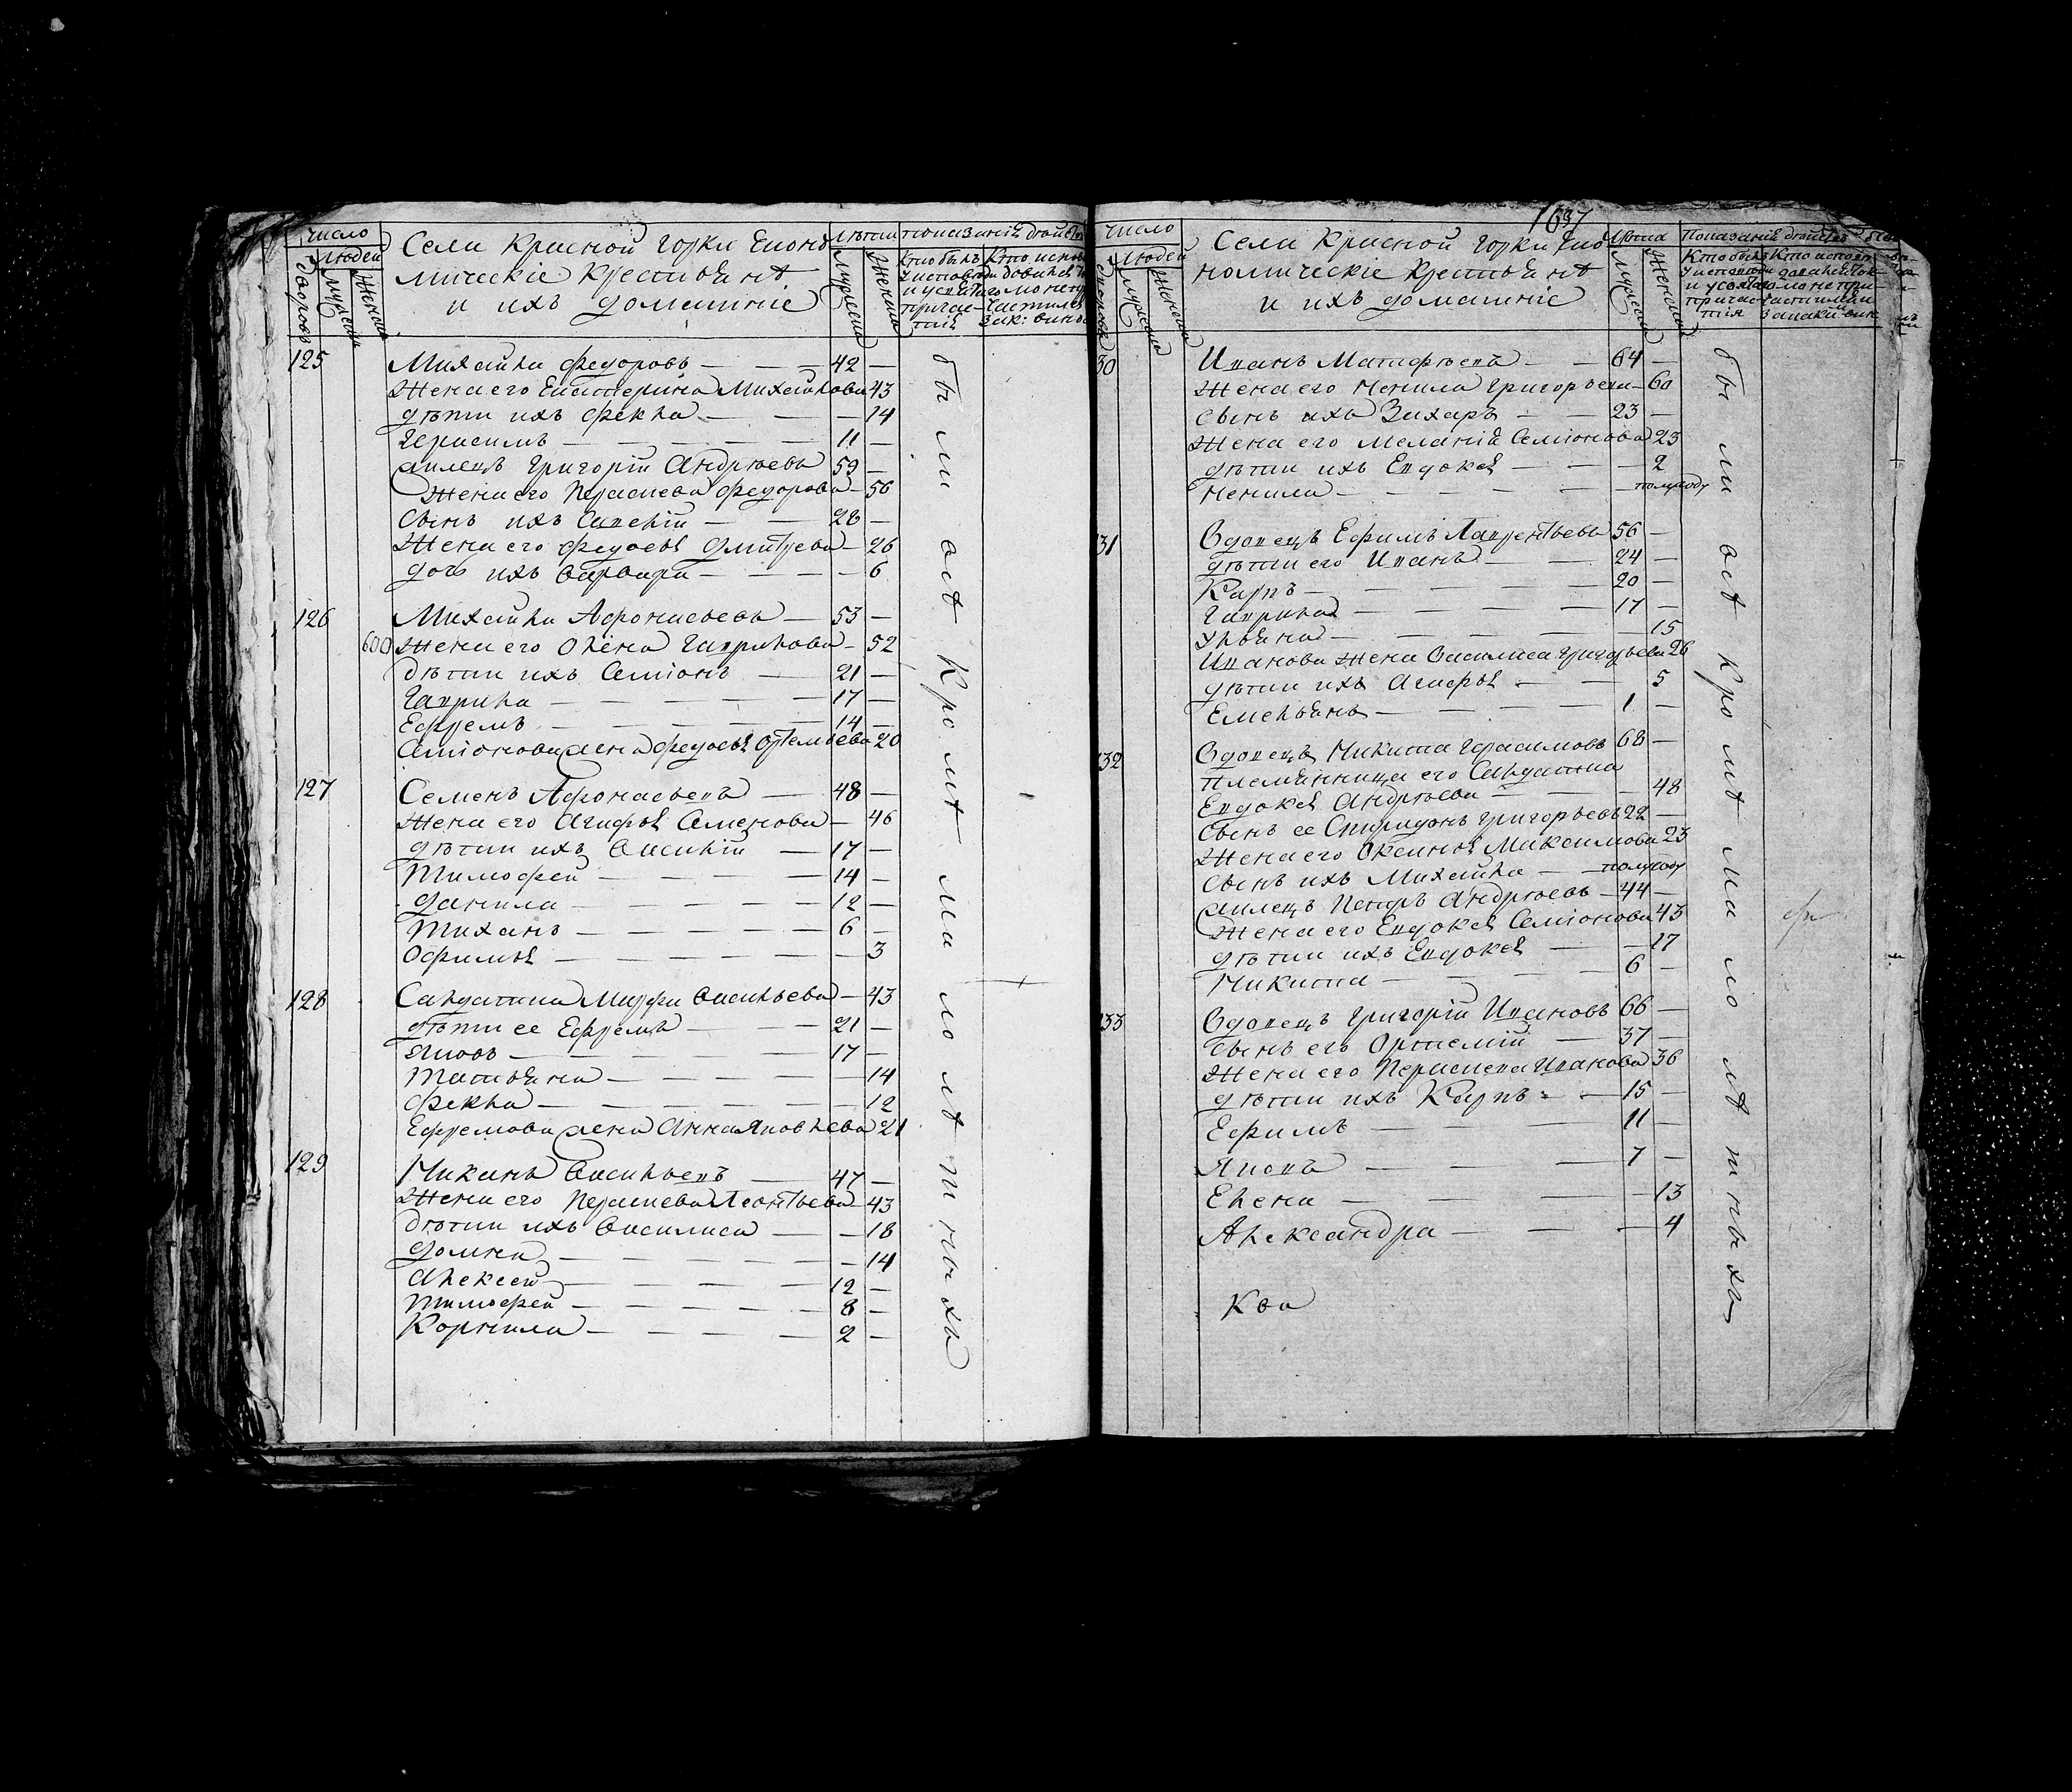 число
людей
дворовъ
мужеска
женска
Села Красной горки Еконо
мическіе Крестьянѣ
и ихъ домашніе
Лѣта
мужеска
женска
показаніѣ дѣйств
Кто былъ
у исповѣди
и у святаго
причас-
тія
125
Михайла Федоровъ — — — 42 —
Жена его Екатерина Михайлова 43
дѣти ихъ Фекла — — — — 14
Герасимъ — — — — — 11 —
Григорій Андрѣевъ 59 —
Жена его Пераскева Федорова — 56
Сынъ ихъ Савелій — — 28 —
Жена его Федосья Дмитрева — 26
дочь ихъ Варвара — — — — 6
126
Михайла Афонасьевъ — 53 —
600 Жена его Олена Гаврилова — 52
Дѣти ихъ Семіонъ — 21 —
Гаврила — — — — 17 —
Ефремъ — — — — — 14 —
Семіонова жена Федосья Ортемьева 20
127
Семенъ Афонасьевъ — 48 —
Жена его Агафья Семенова — 46
дѣти ихъ Василій — 17 —
Тимофей — — — — 14 —
Данила — — — — — 12 —
Тиханъ — — — — — 6 —
Офимья — — — — — — 3
128
Салдатка Марфа Васильева — 43
дѣти ее Ефремъ — — 21 —
Яковъ — — — — — 17 —
Татьяна — — — — — 14
Фекла — — — — — — 12
Ефремова жена Анна Яковлева 21
129
Никанъ Васильевъ — 47 —
Жена его Пераскева Леонтьева 43
Дѣти ихъ Василиса — — 18
Домна — — — — — — 14
Алексей — — — — 12 —
Тимофей — — — — — 8 —
Корнила — — — — — 2 —
бы ли всѣ кромѣ ма ло лѣ тныхъ
1637
число
людей
мужеска
женска
Села Красной горки Еко
номическіе Крестьянѣ
и ихъ домашніе
Лѣта
мужеска
женска
Показаніѣ дѣйств
Кто былъ
у исповѣди
и у святаго
причас
тія
30
Иванъ Матфѣевъ — — 64 —
Жена его Ненила Григорьева — 60
Сынъ ихъ Захаръ — — 23 —
Жена его Меланія Семіонова 23
дѣти ихъ Евдокея — — — 2
Ненила — — — — — — полугоду
31
Вдовецъ Ефимъ Лаврентьевъ 56 —
дѣти его Иванъ — — 24 —
Карпъ — — — — — 20 —
Гаврила — — — — 17 —
Ульяна — — — — — 15
Иванова жена Василиса Григорьева 26
дѣти ихъ Агафья — — 5
Емельянъ — — — — 1 —
132
Вдовецъ Никита Герасимовъ 68 —
Племянница его Салдатка
Евдокея Андрѣева — — — 48
Сынъ ее Спиридонъ Григорьевъ 22 —
Жена его Оксинья Максимова 23
Сынъ ихъ Михайла — — полугоду
Петръ Андрѣевъ — 44 —
Жена его Евдокея Семіонова 43
дѣти ихъ Евдокея — — 17
Никита — — — — 6 —
33
Вдовецъ Григорій Ивановъ 66 —
Сынъ его Ортемій — 37 —
Жена его Пераскева Иванова 36
дѣти ихъ Карпъ — — 15 —
Ефимъ — — — — 11 —
Яковъ — — — 7 —
Елена — — — — 13
Александра — — — 4
бы ли всѣ кромѣ ма ло лѣ тныхъ